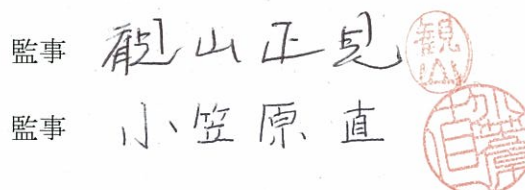 監事 観山正見
観山
監事 小笠原 直